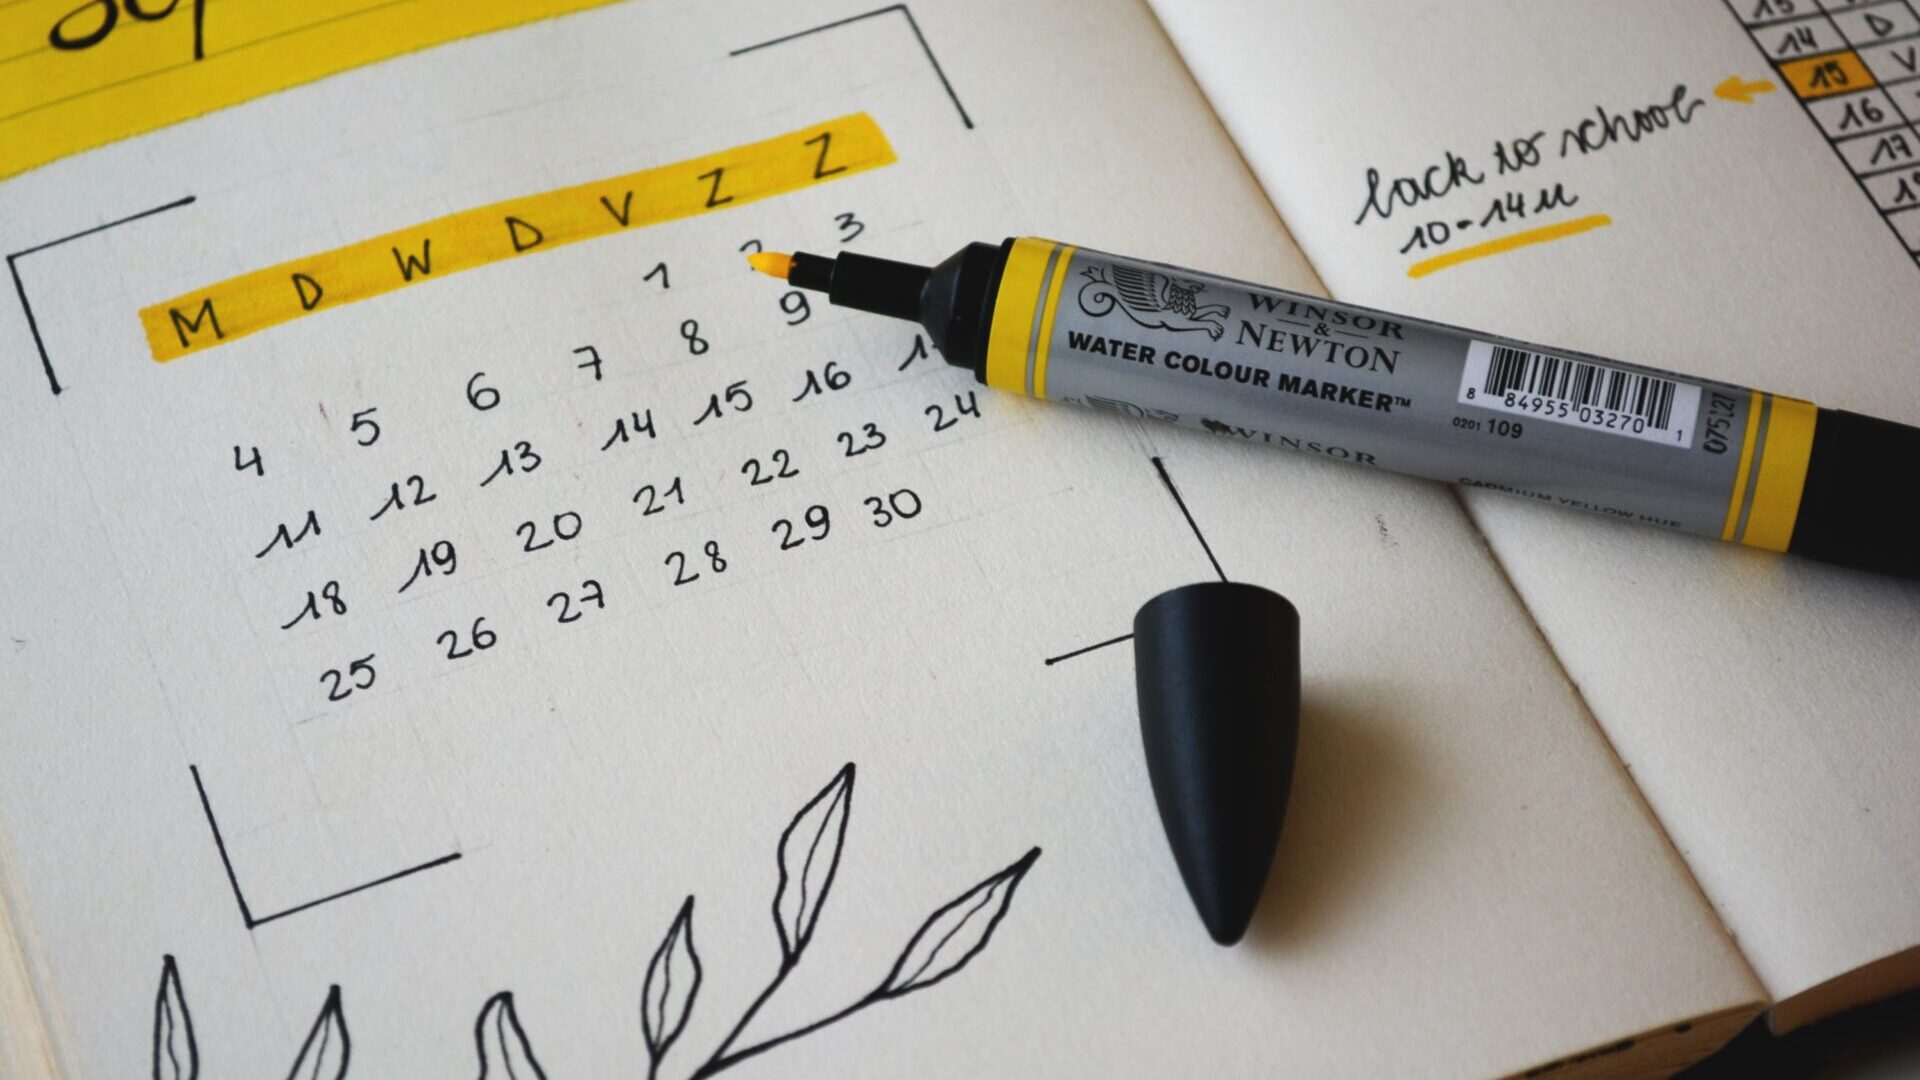 Sep
M D W D V Z Z
1 2 3
4 5 6 7 8 9
11 12 13 14 15 16
18 19 20 21 22 23 24
25 26 27 28 29 30
WINSOR
&
NEWTON
WATER COLOUR MARKER™
8 84955 03270 1
0201 109
075127
WINSOR
CADMIUM YELLOW HUE
back to school
10-14u
14 D
15 V
16
17